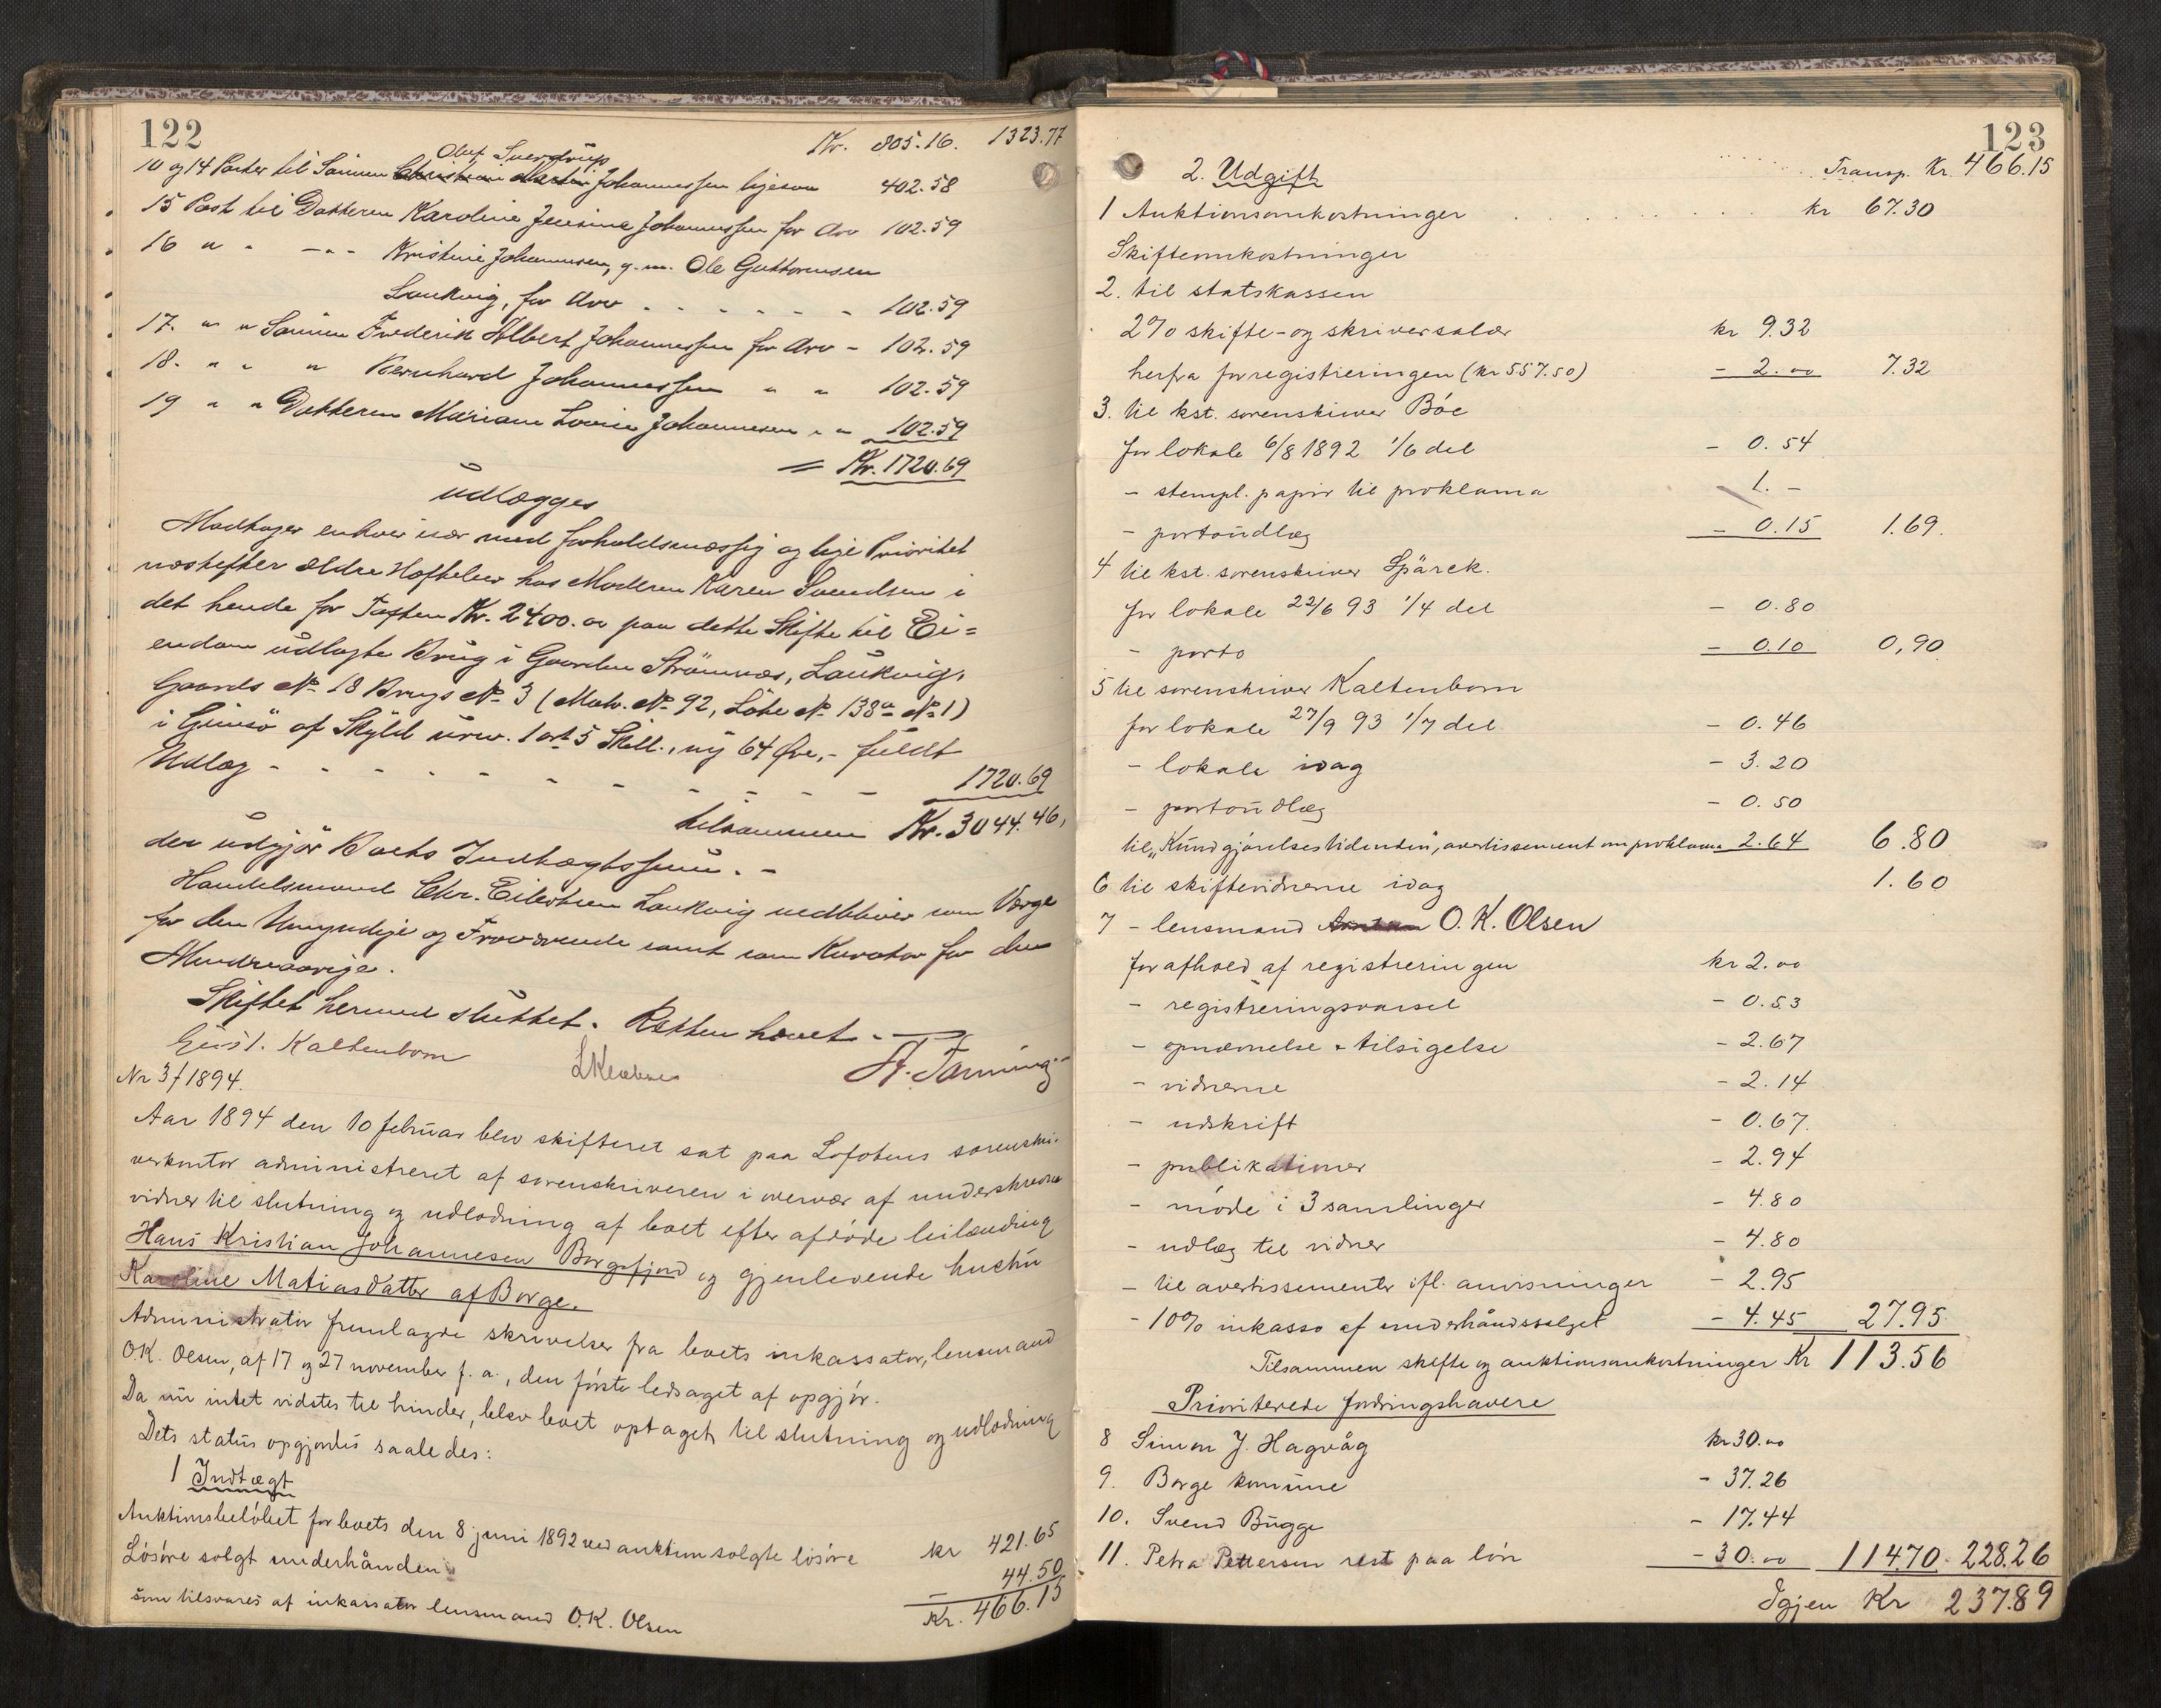 122
Kr. 805.16. 1323.77
Oluf Sverdrup
10 og 14 Poster til Sønnen Christian Martin Johannessen ligesaa 402.58
15 Post til Datteren Karoline Jensine Johannessen for Arv 102.59
16 " " — " - Kristine Johannesen, g. m. Ole Guttormsen
Laukvig, for Arv - - - - - - 102.59
17. " " Sønnen Frederik Albert Johannessen for Arv - 102.59
18. " " " Bernhard Johannessen " " 102.59
19 " " Datteren Mariane Lovise Johannesen " " 102.59
= Kr. 1720.69
udlægges
Modtager enhver især med forholdsmæssig og lige Prioritet
næstefter ældre Heftelser hos Moderen Karen Svendsen i
det hende for Taxten Kr. 2400.00 paa dette Skifte til Ei=
endom udlagte Brug i Gaarden Strömnæs, Laukvig,
Gaards No 18 Brugs No 3 (Matr. No 92, Löbe No 138a No 1)
i Gimsö af Skyld urev. 1 ort 5 Skill., ny 64 Øre, - fuldt
Udlæg - - - - - - - - - 1720.69
tilsammen Kr. 3044.46,
der udgjør Boets Indtægtssum. -
Handelsmand Chr. Eilertsen Laukvig vedbliver som Værge
for den Umyndige og Fraværende samt som Kurator for den
Mindreaarige.
Skiftet hermed sluttet. Retten hævet. —
Gust. Kaltenborn
LKlæboe
A. Tanning
Nr 3/1894.
Aar 1894 den 10 februar blev skifteret sat paa Lofotens sorenskri-
verkontor administreret af sorenskriveren i overvær af underskrevne
vidner til slutning og udlodning af boet efter afdøde leilænding
Hans Kristian Johannesen Borgefjord og gjenlevende hustru
Karoline Matiasdatter af Borge.
Administrator fremlagde skrivelser fra boets inkassator, lensmand
O.K. Olsen, af 17 og 27 november f. a., den første ledsaget af opgjør.
Da nu intet vidstes til hinder, blev boet optaget til slutning og udlodning
Dets status opgjordes saaledes:
1 Indtægt
Auktionsbeløbet for boets den 8 juni 1892 ved auktion solgte løsøre kr 421.65
Løsøre solgt underhånden — 44.50
som tilsvares af inkassator lensmand O.K. Olsen Kr. 466.15
123
2. Udgift Transp. Kr. 466.15
1 Auktionsomkostninger . . . . . . . . kr 67.30
Skifteomkostninger
2. til statskassen
2% skifte- og skriversalær kr 9.32
herfra for registreringen (kr 557.50) - 2.00 7.32
3. til kst. sorenskriver Bóe
for lokale 6/8 1892 1/6 del - 0.54
- stempl. papir til proklama 1. -
- portoudlæg - 0.15 1.69.
4 til kst. sorenskriver Spärck.
for lokale 22/6 93 1/4 del - 0.80
- porto - 0.10 0,90
5 til sorenskriver Kaltenborn
for lokale 27/9 93 1/7 del - 0.46
- lokale idag - 3.20
- portoudlæg - 0.50
til „Kundgjørelsestidenden", avertissement om proklama 2.64 6.80
6 til skiftevidnerne idag 1.60
7 - lensmand O. K. Olsen
for afhold af registreringen kr 2.00
- registreringsvarsel - 0.53
- opnævnelse & tilsigelse - 2.67
- vidnerne - 2.14
- udskrift - 0.67.
- publikationer - 2.94
- møde i 3 samlinger - 4.80
- udlæg til vidner - 4.80
- til avertissementer ifl. anvisninger - 2.95
- 10% inkasso af underhåndssalget - 4.45 27.95
Tilsammen skifte og auktionsomkostninger Kr 113.56
Prioriterede fordringshavere
8 Simon J. Hagvåg kr 30.00
9. Borge kommune - 37.26
10. Svend Bugge - 17.44
11. Petra Pettersen rest paa løn - 30.00 114.70. 228.26
Igjen Kr 237.89